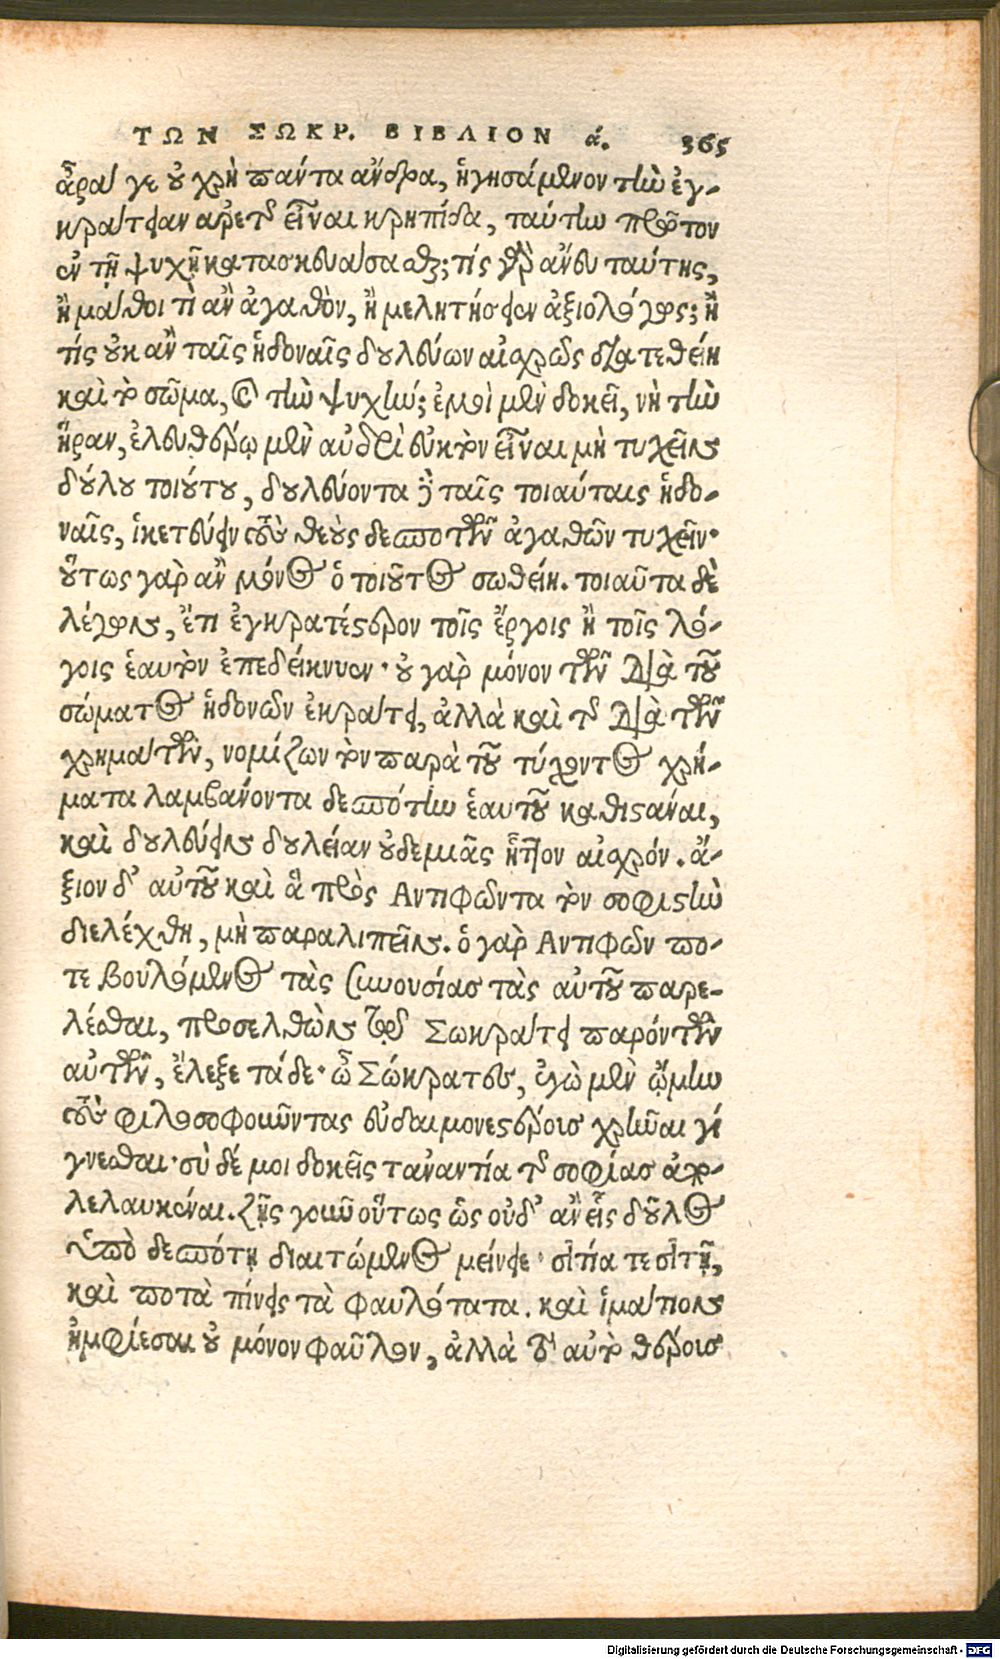 ΤΩΝ ΣΩΚΡ. ΒΙΒΛΙΟΝ ά. 365
ἆρά γε οὐ χρὴ πάντα ἄνδρα, ἡγησάμενον τὴν ἐγ-
κράτειαν ἀρετῆς εἶναι κρηπίδα, ταύτην πρῶτον
ἐν τῇ ψυχῇ κατασκευάσασθαι; τίς γὰρ ἄνευ ταύτης,
ἢ μάθοι τὶ ἂν ἀγαθὸν, ἢ μελητήσειεν ἀξιολόγως; ἢ
τίς οὐκ ἂν ταῖς ἡδοναῖς δουλεύων αἰσχρῶς διατεθείη
καὶ τὸ σῶμα, καὶ τὴν ψυχήν; ἐμοὶ μὲν δοκεῖ, νὴ τὴν
ἥραν, ἐλευθέρῳ μὲν ἀνδρὶ εὐκτὸν εἶναι μὴ τυχεῖν
δούλου τοιούτου, δουλεύοντα δὲ ταῖς τοιαύταις ἡδο-
ναῖς, ἱκετεύειν τοὺς θεοὺς δεσποτῶν ἀγαθῶν τυχεῖν·
οὕτως γὰρ ἂν μόνος ὁ τοιοῦτος σωθείη. τοιαῦτα δὲ
λέγων, ἔτι ἐγκρατέστερον τοῖς ἔργοις ἢ τοῖς λό-
γοις ἑαυτὸν ἐπεδείκνυεν· οὐ γὰρ μόνον τῶν διὰ τοῦ
σώματος ἡδονῶν ἐκράτει, ἀλλὰ καὶ τῆς διὰ τῶν
χρημάτων, νομίζων τὸν παρὰ τοῦ τύχοντος χρή-
ματα λαμβάνοντα δεσπότην ἑαυτοῦ καθιστάναι,
καὶ δουλεύειν δουλείαν οὐδεμιᾶς ἧττον αἰσχρόν. ἄ-
ξιον δ' αὐτοῦ καὶ ἃ πρὸς Ἀντιφῶντα τὸν σοφιστὴν
διελέχθη, μὴ παραλιπεῖν. ὁ γὰρ Ἀντιφῶν πο-
τε βουλόμενος τὰς συνουσίας τὰς αὐτοῦ παρε-
λέσθαι, προσελθὼν τῷ Σωκράτει παρόντων
αὐτῶν, ἔλεξε τάδε· ὦ Σώκρατες, ἐγὼ μὲν ᾤμην
τοὺς φιλοσοφοῦντας εὐδαιμονεστέροις χρῆναι γί
γνεσθαι· σὺ δέ μοι δοκεῖς τἀναντία τῆς σοφίας ἀπο-
λελαυκέναι. ζῇς γοῦν οὕτως ὡς οὐδ' ἂν εἷς δοῦλος
ὑπὸ δεσπότῃ διαιτώμενος μείνειε· σιτία τε σιτῇ,
καὶ ποτὰ πίνεις τὰ φαυλότατα. καὶ ἱμάτιον
ἠμφίεσαι οὐ μόνον φαῦλον, ἀλλὰ τὸ αὐτὸ θέροις
Digitalisierung gefördert durch die Deutsche Forschungsgemeinschaft - DFG